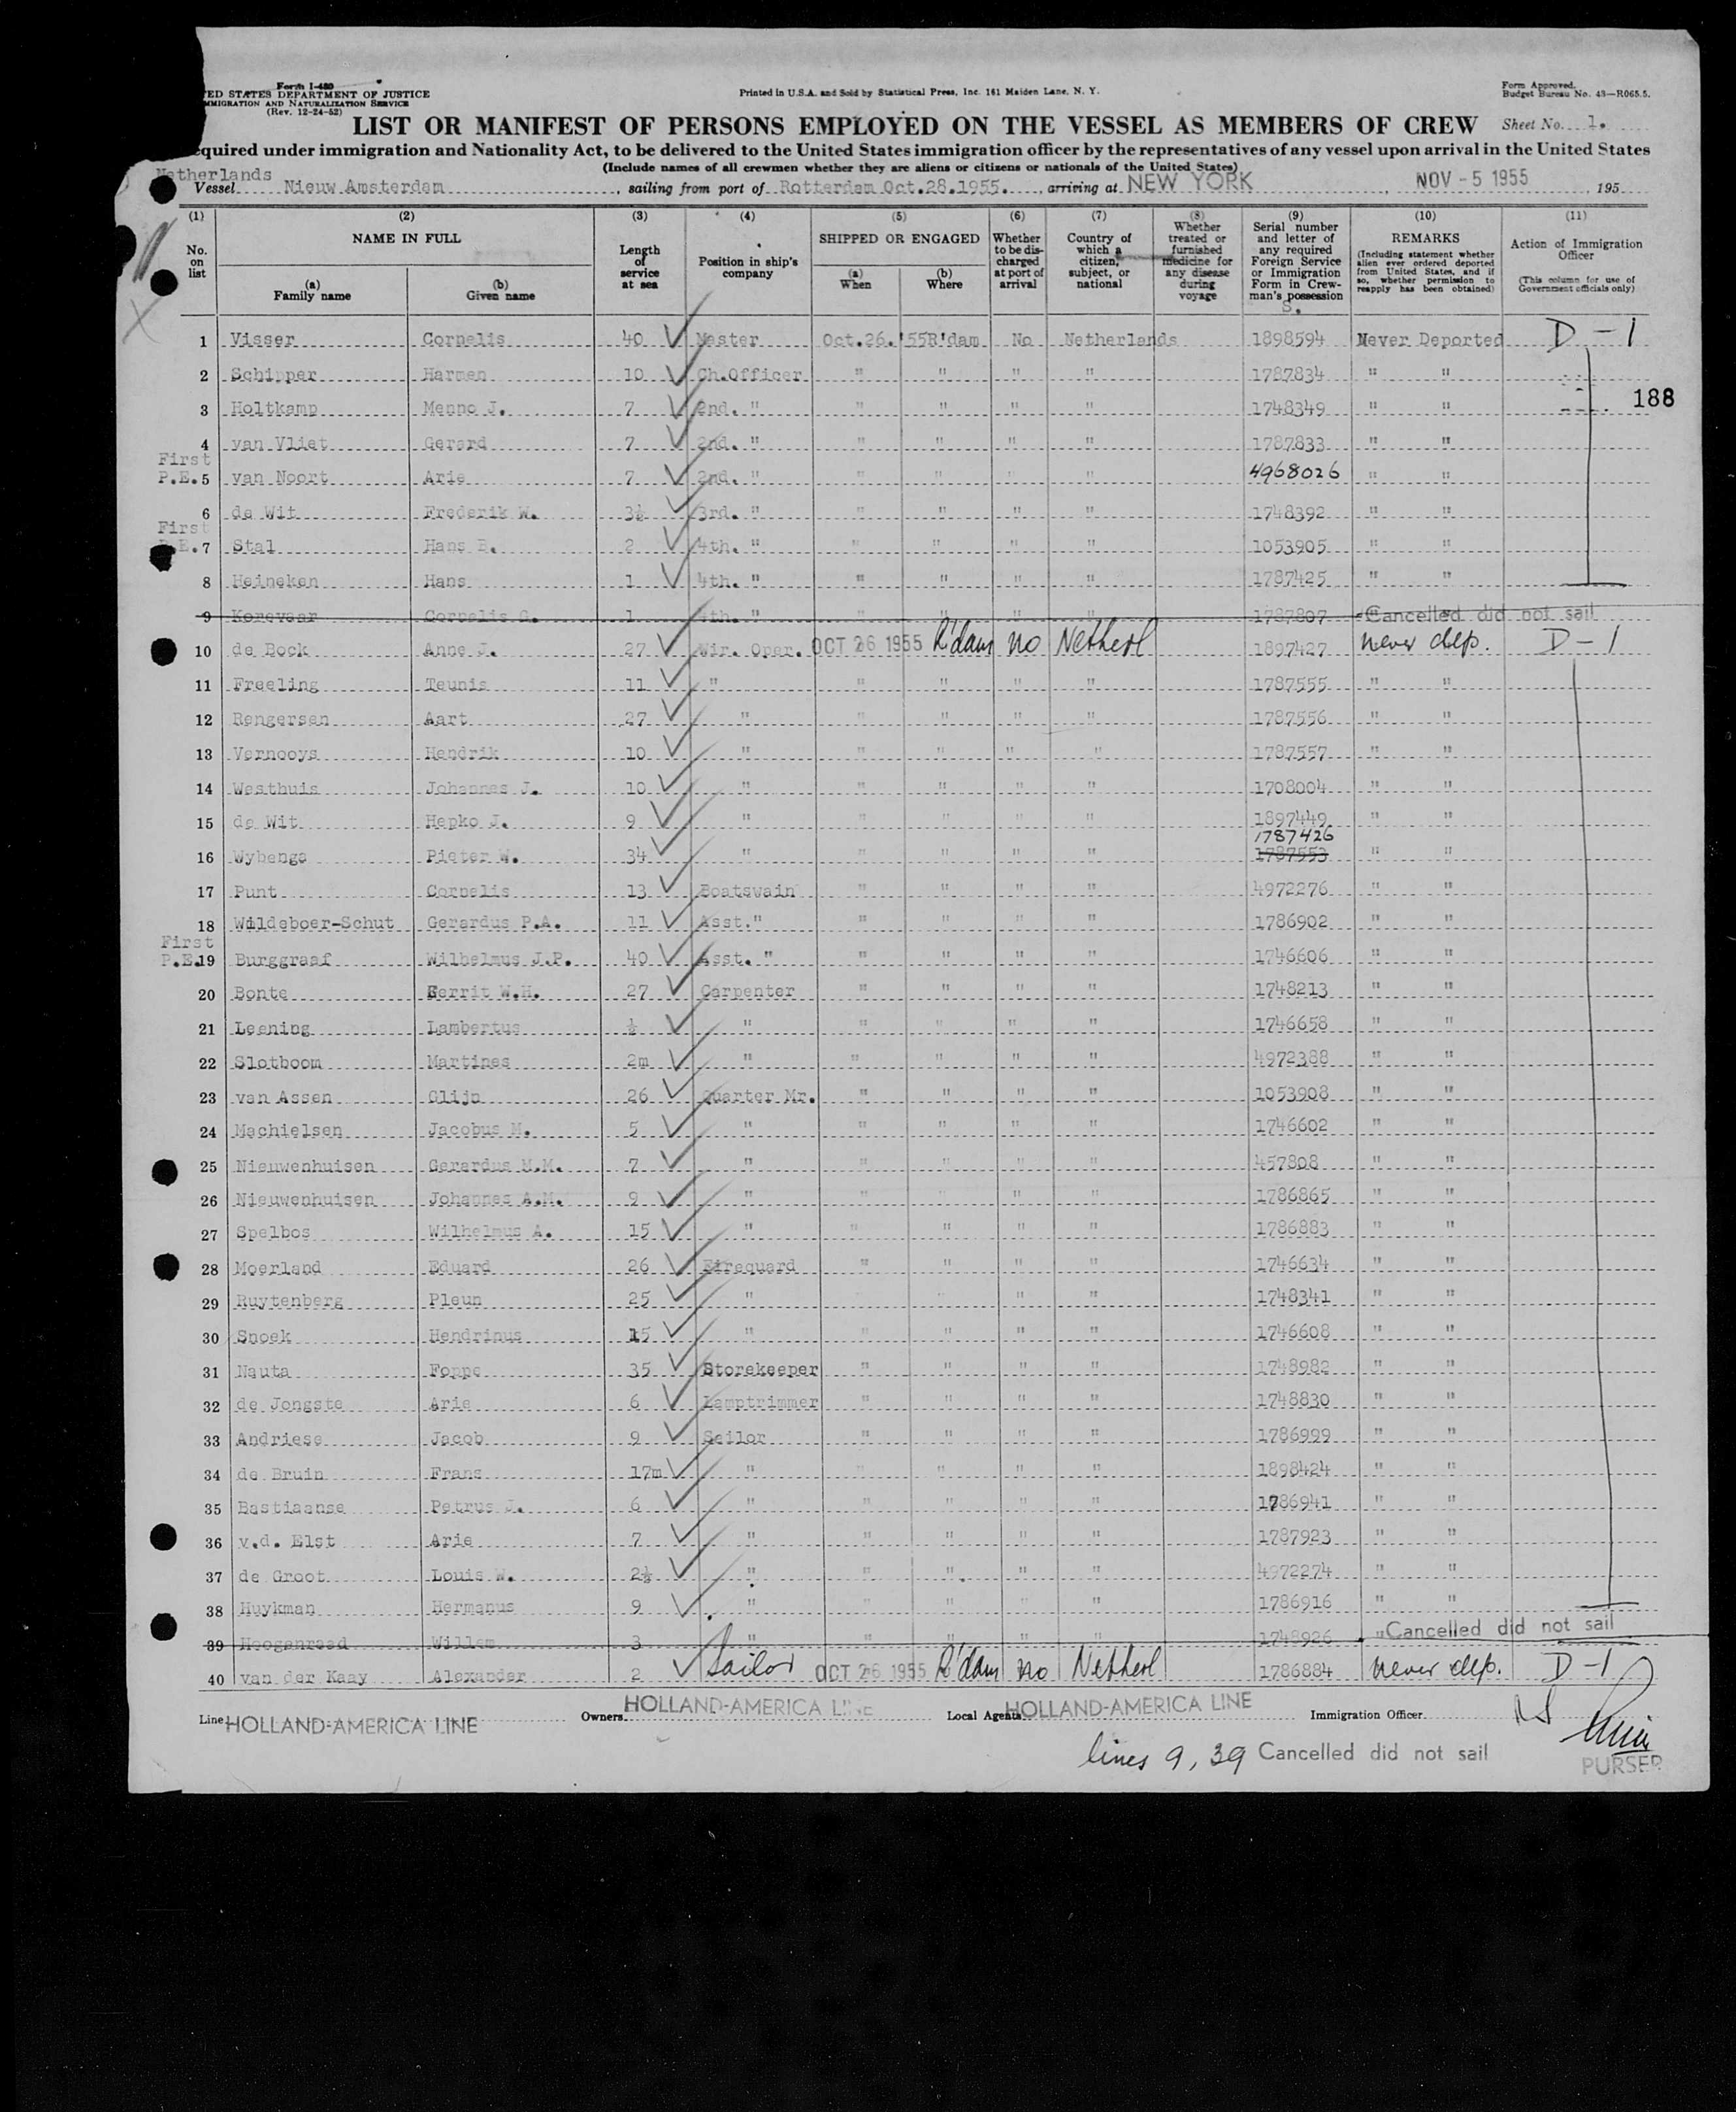 Form I-480
ED STATES DEPARTMENT OF JUSTICE
MMIGRATION AND NATURALIZATION SERVICE
(Rev. 12-24-52)
Printed in U.S.A. and Sold by Statistical Press, Inc. 161 Maiden Lane, N. Y.
Form Approved.
Budget Bureau No. 43—R065.5.
LIST OR MANIFEST OF PERSONS EMPLOYED ON THE VESSEL AS MEMBERS OF CREW Sheet No. 1.
equired under immigration and Nationality Act, to be delivered to the United States immigration officer by the representatives of any vessel upon arrival in the United States
(Include names of all crewmen whether they are aliens or citizens or nationals of the United States)
Netherlands
Vessel Nieuw Amsterdam, sailing from port of Rotterdam Oct.28.1955., arriving at NEW YORK, NOV - 5 1955, 195
(1) (2) (3) (4) (5) (6) (7) (8) (9) (10) (11)
No. on list
NAME IN FULL
(a) Family name
(b) Given name
Length of service at sea
Position in ship's company
SHIPPED OR ENGAGED
(a) When
(b) Where
Whether to be discharged at port of arrival
Country of which a citizen, subject, or national
Whether treated or furnished medicine for any disease during voyage
Serial number and letter of any required Foreign Service or Immigration Form in Crewman's possession
S.
REMARKS
(Including statement whether alien ever ordered deported from United States, and if so, whether permission to reapply has been obtained)
Action of Immigration Officer
(This column for use of Government officials only)
1 Visser Cornelis 40 Master Oct.26.'55 R'dam No Netherlands 1898594 Never Deported D-1
2 Schipper Harmen 10 Ch.Officer " " " " 1787834 " "
188
3 Holtkamp Menno J. 7 2nd. " " " " " 1748349 " "
4 van Vliet Gerard 7 2nd. " " " " " 1787833 " "
First
P.E. 5 van Noort Arie 7 2nd. " " " " " 4968026 " "
6 de Wit Frederik W. 3½ 3rd. " " " " " 1748392 " "
First
P.E. 7 Stal Hans B. 2 4th. " " " " " 1053905 " "
8 Heineken Hans 1 4th. " " " " " 1787425 " "
9 Korevaar Cornelis G. 1 4th. " " " " " 1787807 Cancelled did not sail
10 de Bock Anne J. 27 Wir. Oper. OCT 26 1955 R'dam no Netherl 1897427 never dep. D-1
11 Freeling Teunis 11 " " " " " 1787555 " "
12 Rengersen Aart 27 " " " " " 1787556 " "
13 Vernooys Hendrik 10 " " " " " 1787557 " "
14 Westhuis Johannes J. 10 " " " " " 1708004 " "
15 de Wit Hepko J. 9 " " " " " 1897449 " "
1787426
16 Wybenga Pieter W. 34 " " " " " 1787553 " "
17 Punt Cornelis 13 Boatswain " " " " 4972276 " "
18 Wildeboer-Schut Gerardus P.A. 11 Asst." " " " " 1786902 " "
First
P.E. 19 Burggraaf Wilhelmus J.P. 40 Asst. " " " " " 1746606 " "
20 Bonte Gerrit W.H. 27 Carpenter " " " " 1748213 " "
21 Leening Lambertus ½ " " " " " 1746658 " "
22 Slotboom Martines 2m " " " " " 4972388 " "
23 van Assen Glijn 26 Quarter Mr. " " " " 1053908 " "
24 Machielsen Jacobus M. 5 " " " " " 1746602 " "
25 Nieuwenhuisen Gerardus M.M. 7 " " " " " 457808 " "
26 Nieuwenhuisen Johannes A.M. 9 " " " " " 1786865 " "
27 Spelbos Wilhelmus A. 15 " " " " " 1786883 " "
28 Moerland Eduard 26 Fireguard " " " " 1746634 " "
29 Ruytenberg Pleun 25 " " " " 1748341 " "
30 Snoek Hendrinus 15 " " " " " 1746608 " "
31 Nauta Foppe 35 Storekeeper " " " " 1748982 " "
32 de Jongste Arie 6 Lamptrimmer " " " " 1748830 " "
33 Andriese Jacob 9 Sailor " " " " 1786999 " "
34 de Bruin Frans 17m " " " " " 1898424 " "
35 Bastiaanse Petrus J. 6 " " " " " 1786941 " "
36 v.d. Elst Arie 7 " " " " " 1787923 " "
37 de Groot Louis W. 2½ " " " " " 4972274 " "
38 Huykman Hermanus 9 " " " " " 1786916 " "
39 Hoogenraad Willem 3 " " " " " 1748926 "Cancelled did not sail
40 van der Kaay Alexander 2 Sailor OCT 26 1955 R'dam no Netherl 1786884 never dep. D-1
Line HOLLAND-AMERICA LINE Owners HOLLAND-AMERICA LINE Local Agents HOLLAND-AMERICA LINE Immigration Officer
lines 9, 39 Cancelled did not sail
PURSER